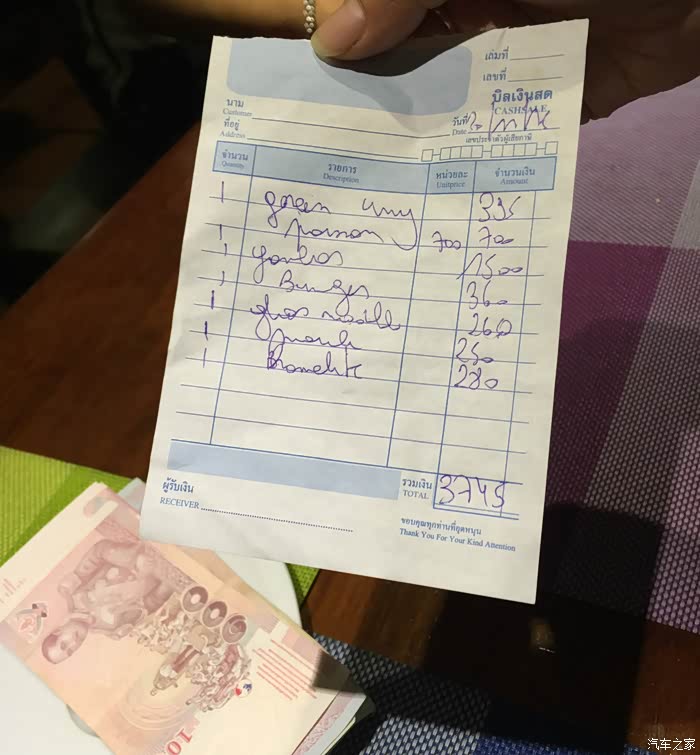 เล่มที่
เลขที่
บิลเงินสด
CASHSALE
นาม
Customer
วันที่
Date
ที่อยู่
Address
เลขประจำตัวผู้เสียภาษี
จำนวน รายการ หน่วยละ จำนวนเงิน
Quantity Description Unitprice Amount
1 green 395
1 700 700
1 1500
1 Burger 360
1 260
1 250
1 280
รวมเงิน
TOTAL 3745
ผู้รับเงิน
RECEIVER
ขอบคุณทุกท่านที่อุดหนุน
Thank You For Your Kind Attention
汽车之家